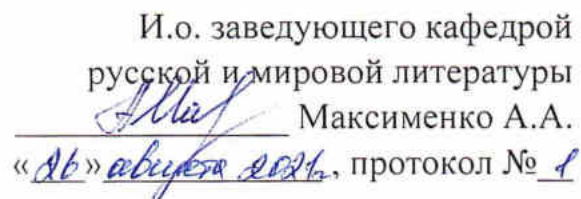 И.о. заведующего кафедрой
русской и мировой литературы
Максименко А.А.
«26» августа 2021г., протокол № 1